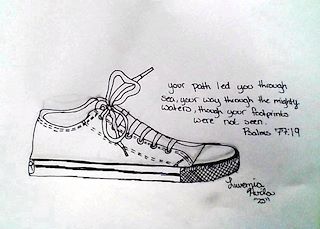 your path led you through
sea, your way through the mighty
waters, though your footprints
were not seen.
Psalms 77:19